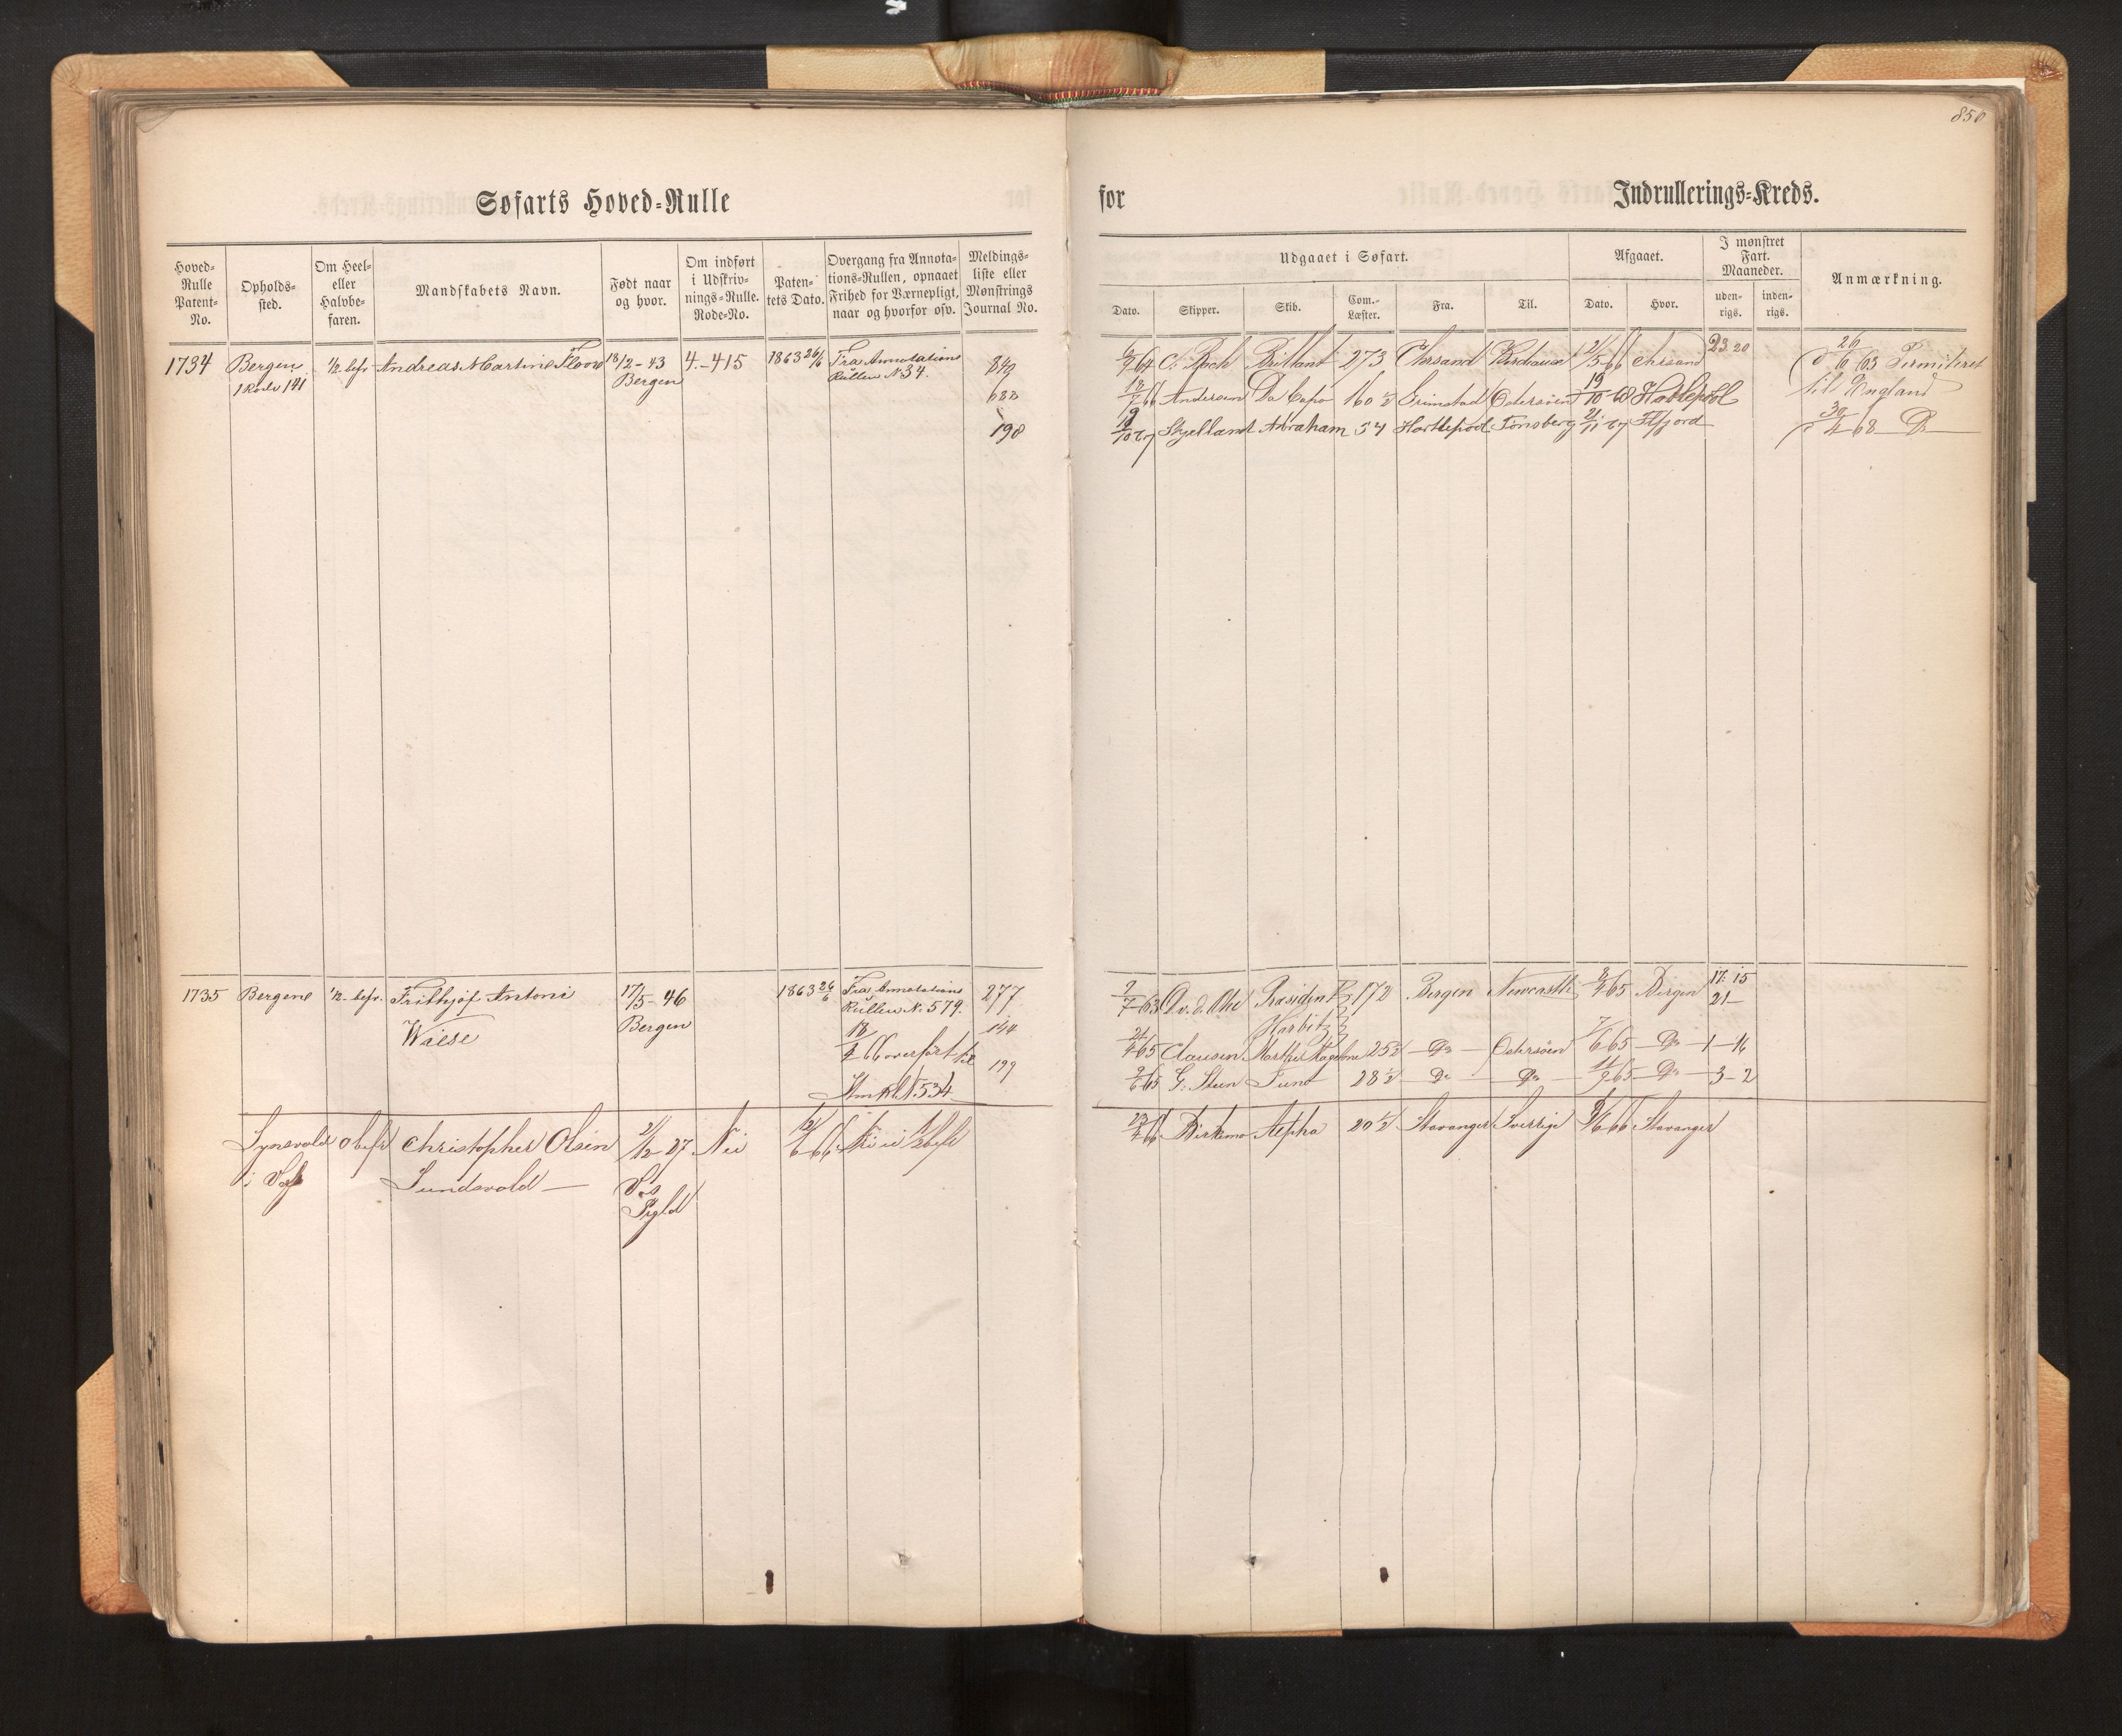 850
Søfarts Hoved-Rulle
for Indrullerings-Kreds.
Hoved-Rulle Patent-No.
Opholdssted.
Om Heel- eller Halvbefaren.
Mandskabets Navn.
Født naar og hvor.
Om indført i Udskrivnings-Rulle. Rode-No.
Patentets Dato.
Overgang fra Annotations-Rullen, opnaaet Frihed for Værnepligt, naar og hvorfor osv.
Meldingsliste eller Mønstrings Journal No.
Udgaaet i Søfart.
Afgaaet.
I mønstret Fart. Maaneder.
Anmærkning.
Dato. Skipper. Skib. Com.-Læster. Fra. Til. Dato. Hvor. udenrigs. indenrigs.
1734 Bergen 1/2 bef. Andreas Martin Floor 18/2-43 4.-415 1863 26/6 Fra Annotations 849
1 Rode 141 Bergen Rullen N 34.
198
6/9 64 C. Bach Brilliant 273 Chrsand 21/5 66 Chrsand 23 20 26/6 63 Permitteret
18/7 66 Andersen Da Capo 160 1/2 Grimstad Østersøen 19/10 Hartlepool til England
Skjelland Abraham 54 Hartlepool Tønsberg 21/11 67 30/4 68 Do
1735 Bergen 1/2 befr. Frithjof Antoni 17/5-46 1863 26/6 Fra Annotations 277
Waese Bergen Rullen N. 579. 144
18/4 66 overført til 199
N 534
2/7 63 Præsident 172 Bergen Newcastle 8/4 65 Bergen 17: 15
Harbitz 21
24/4 65 Clausen 25 1/2 Do Østersøen 7/6 65 Do 1-14
9/6 65 G: Steen 28 1/2 Do Do 14/9 65 Do 3-2
obefr Christopher Olsen 21/12 27 Nei 12/6 66
i Voss Sundsvold Vos
Prgld
23/4 66 Birkemo Alpha 20 1/2 Stavanger Sverrige 9/6 66 Stavanger